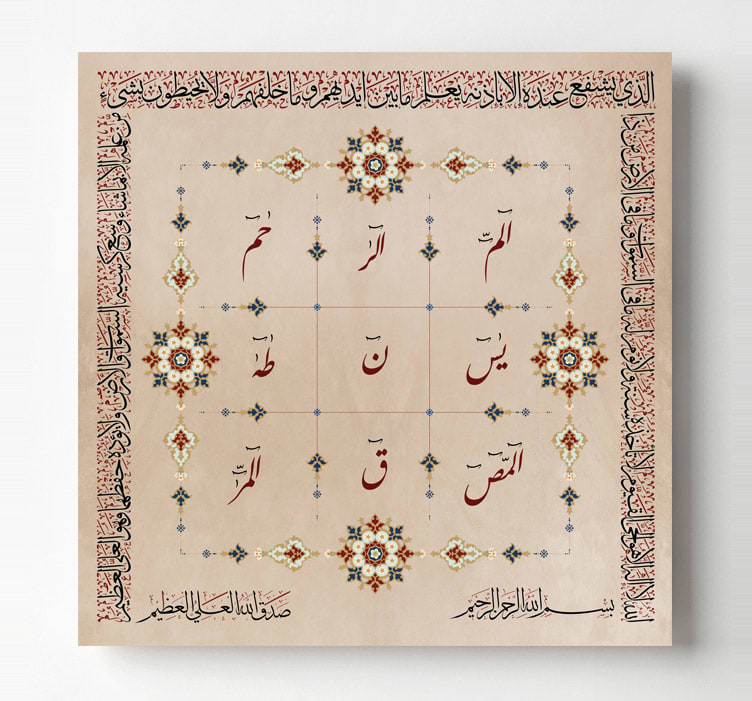 الذي يشفع عنده الا باذنه يعلم ما بين ايديهم وما خلفهم ولا يحيطون بشيء
الله لا اله الا هو الحي القيوم لا تاخذه سنة ولا نوم له ما في السموات وما في الارض من ذا
من علمه الا بما شاء وسع كرسيه السموات والارض ولا يؤده حفظهما وهو العلي العظيم
الٓمّٓ الٓرٰ حٰمٓ
يٰسٓ نٓ طٰهٰ
الٓمّٓصٓ قٓ الٓمّٓرٰ
بسم الله الرحمن الرحيم صدق الله العلي العظيم